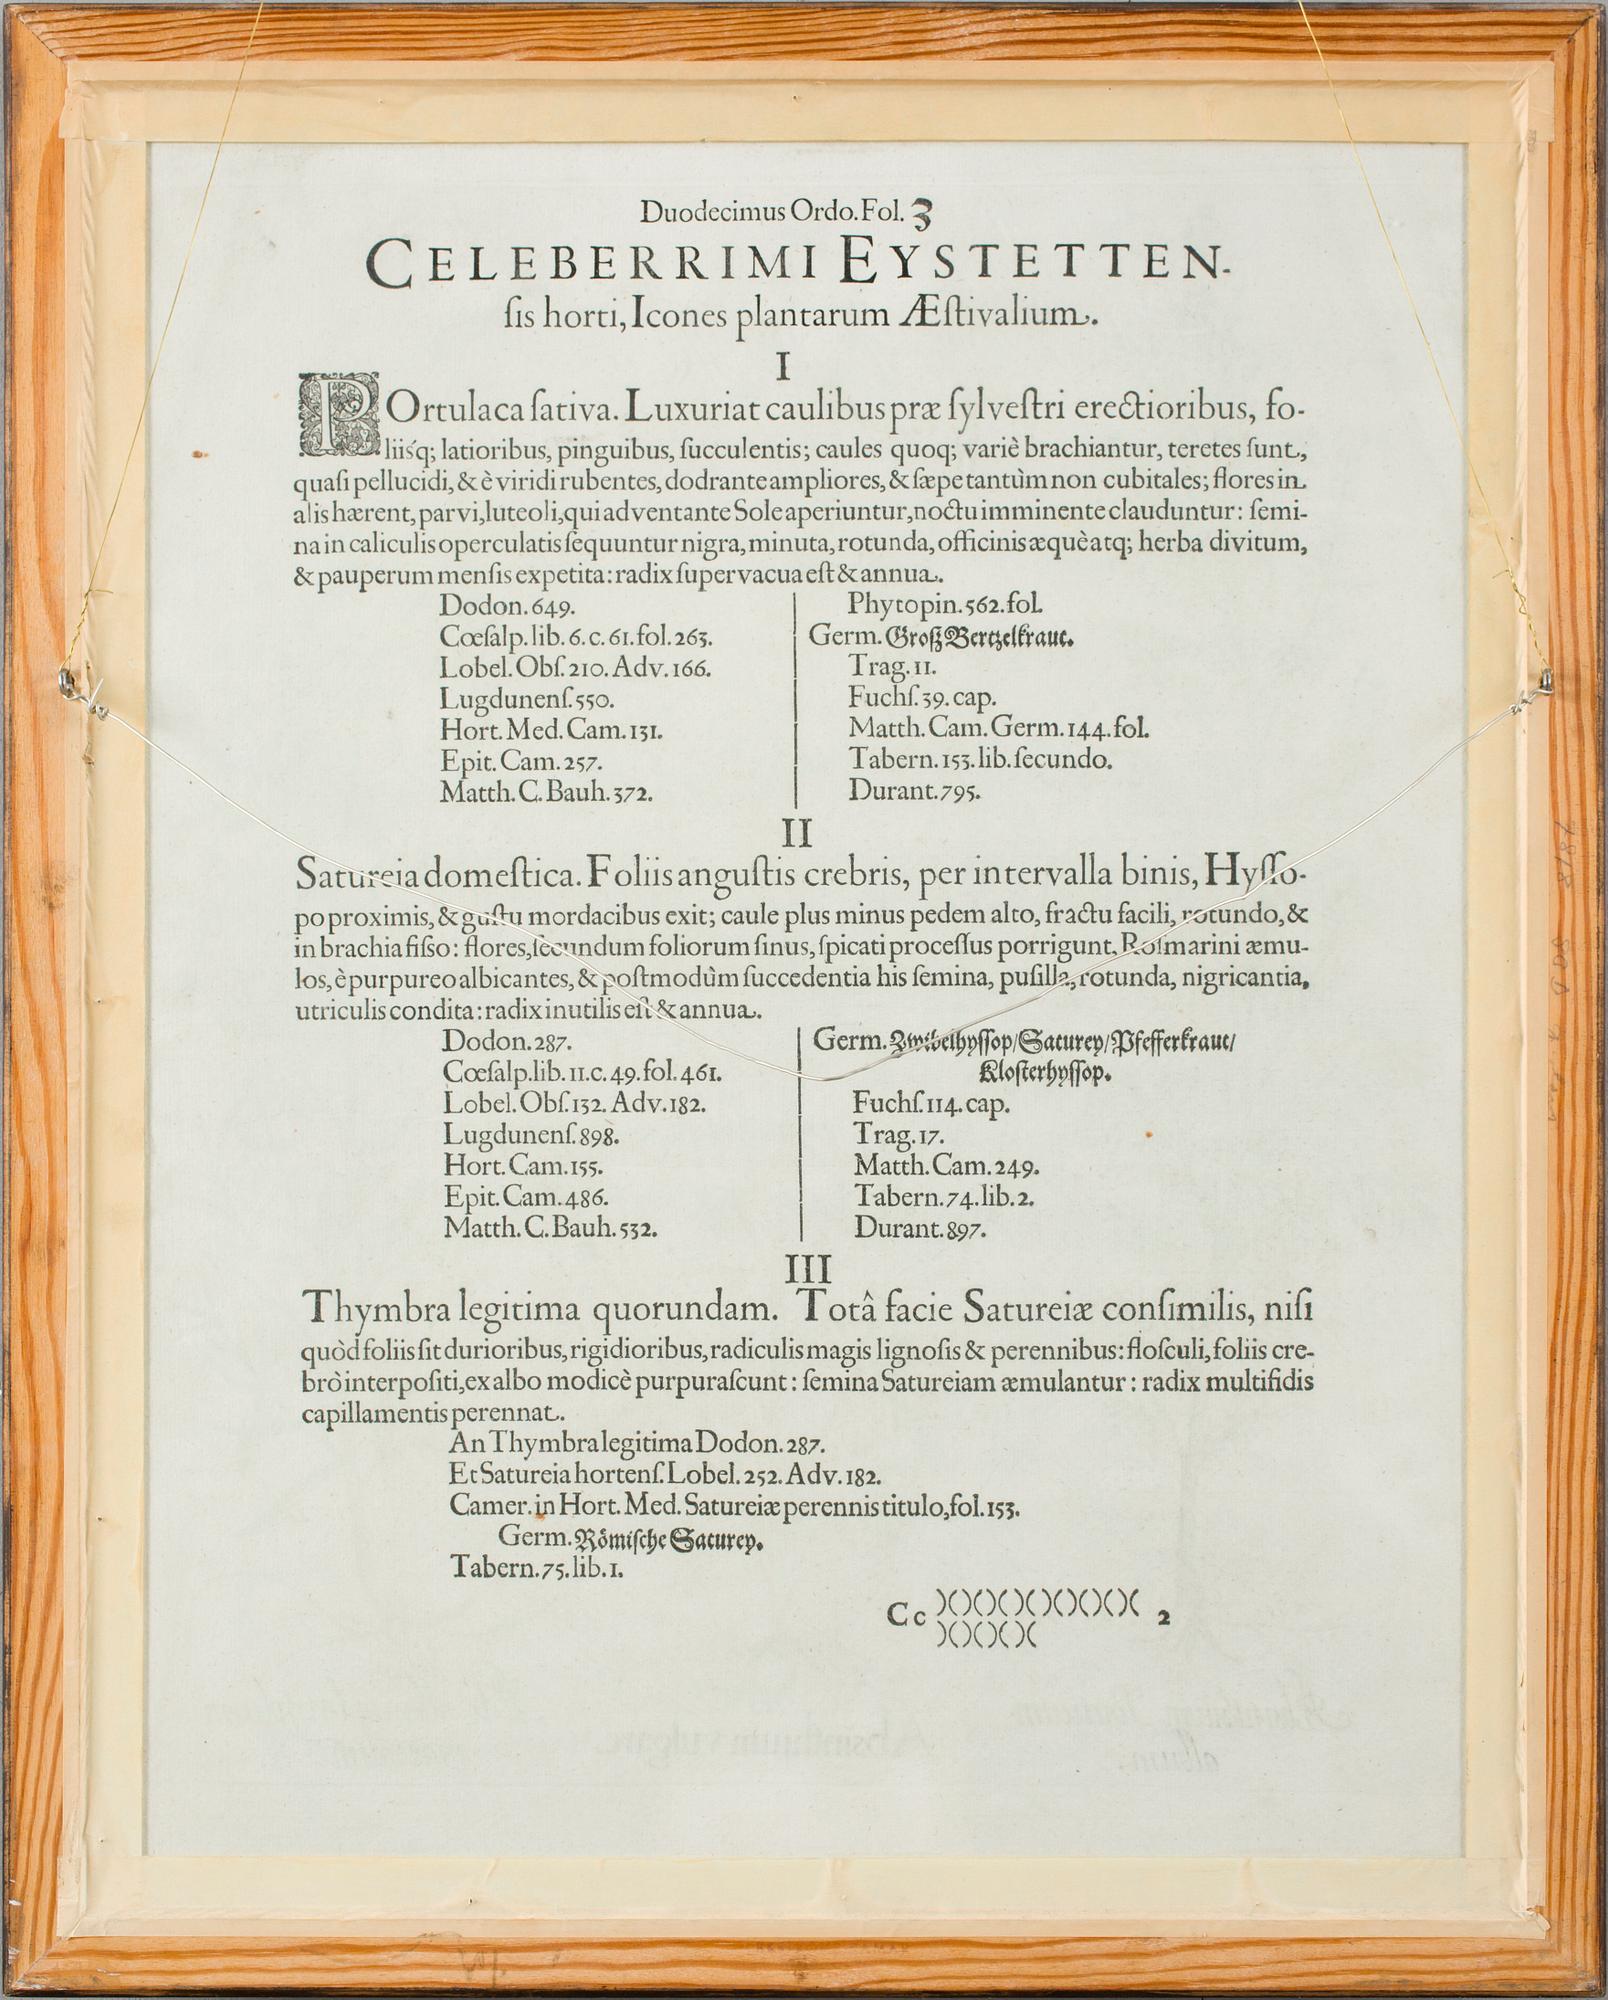 Duodecimus Ordo. Fol. 3
CELEBERRIMI EYSTETTEN-
ſis horti, Icones plantarum Æſtivalium.
I
POrtulaca ſativa. Luxuriat caulibus præ ſylveſtri erectioribus, fo-
liisq́; latioribus, pinguibus, ſucculentis; caules quoq; variè brachiantur, teretes ſunt,
quaſi pellucidi, & è viridi rubentes, dodrante ampliores, & ſæpe tantùm non cubitales; flores in
alis hærent, parvi, luteoli, qui adventante Sole aperiuntur, noctu imminente clauduntur: ſemi-
na in caliculis operculatis ſequuntur nigra, minuta, rotunda, officinis æquè atq; herba divitum,
& pauperum menſis expetita: radix ſupervacua eſt & annua.
Dodon. 649.
Cœſalp. lib. 6. c. 61. fol. 263.
Lobel. Obſ. 210. Adv. 166.
Lugdunenſ. 550.
Hort. Med. Cam. 131.
Epit. Cam. 257.
Matth. C. Bauh. 372.
Phytopin. 562. fol.
Germ. Groß Bertzelkraut.
Trag. 11.
Fuchſ. 39. cap.
Matth. Cam. Germ. 144. fol.
Tabern. 153. lib. ſecundo.
Durant. 795.
II
Satureia domeſtica. Foliis anguſtis crebris, per intervalla binis, Hyſſo-
po proximis, & guſtu mordacibus exit; caule plus minus pedem alto, fractu facili, rotundo, &
in brachia fiſso: flores, ſecundum foliorum ſinus, ſpicati proceſſus porrigunt, Roſmarini æmu-
los, è purpureo albicantes, & poſtmodùm ſuccedentia his ſemina, puſilla, rotunda, nigricantia,
utriculis condita: radix inutilis eſt & annua.
Dodon. 287.
Cœſalp. lib. 11. c. 49. fol. 461.
Lobel. Obſ. 132. Adv. 182.
Lugdunenſ. 898.
Hort. Cam. 155.
Epit. Cam. 486.
Matth. C. Bauh. 532.
Germ. Zwibelhyſſop/ Saturey/ Pfefferkraut/
Kloſterhyſſop.
Fuchſ. 114. cap.
Trag. 17.
Matth. Cam. 249.
Tabern. 74. lib. 2.
Durant. 897.
III
Thymbra legitima quorundam. Totâ facie Satureiæ conſimilis, niſi
quòd foliis ſit durioribus, rigidioribus, radiculis magis lignoſis & perennibus: floſculi, foliis cre-
brò interpoſiti, ex albo modicè purpuraſcunt: ſemina Satureiam æmulantur: radix multifidis
capillamentis perennat.
An Thymbra legitima Dodon. 287.
Et Satureia hortenſ. Lobel. 252. Adv. 182.
Camer. in Hort. Med. Satureiæ perennis titulo, fol. 153.
Germ. Römiſche Saturey.
Tabern. 75. lib. 1.
Cc )()()()()()()()( 2
)()()()(
Absinthium vulgare